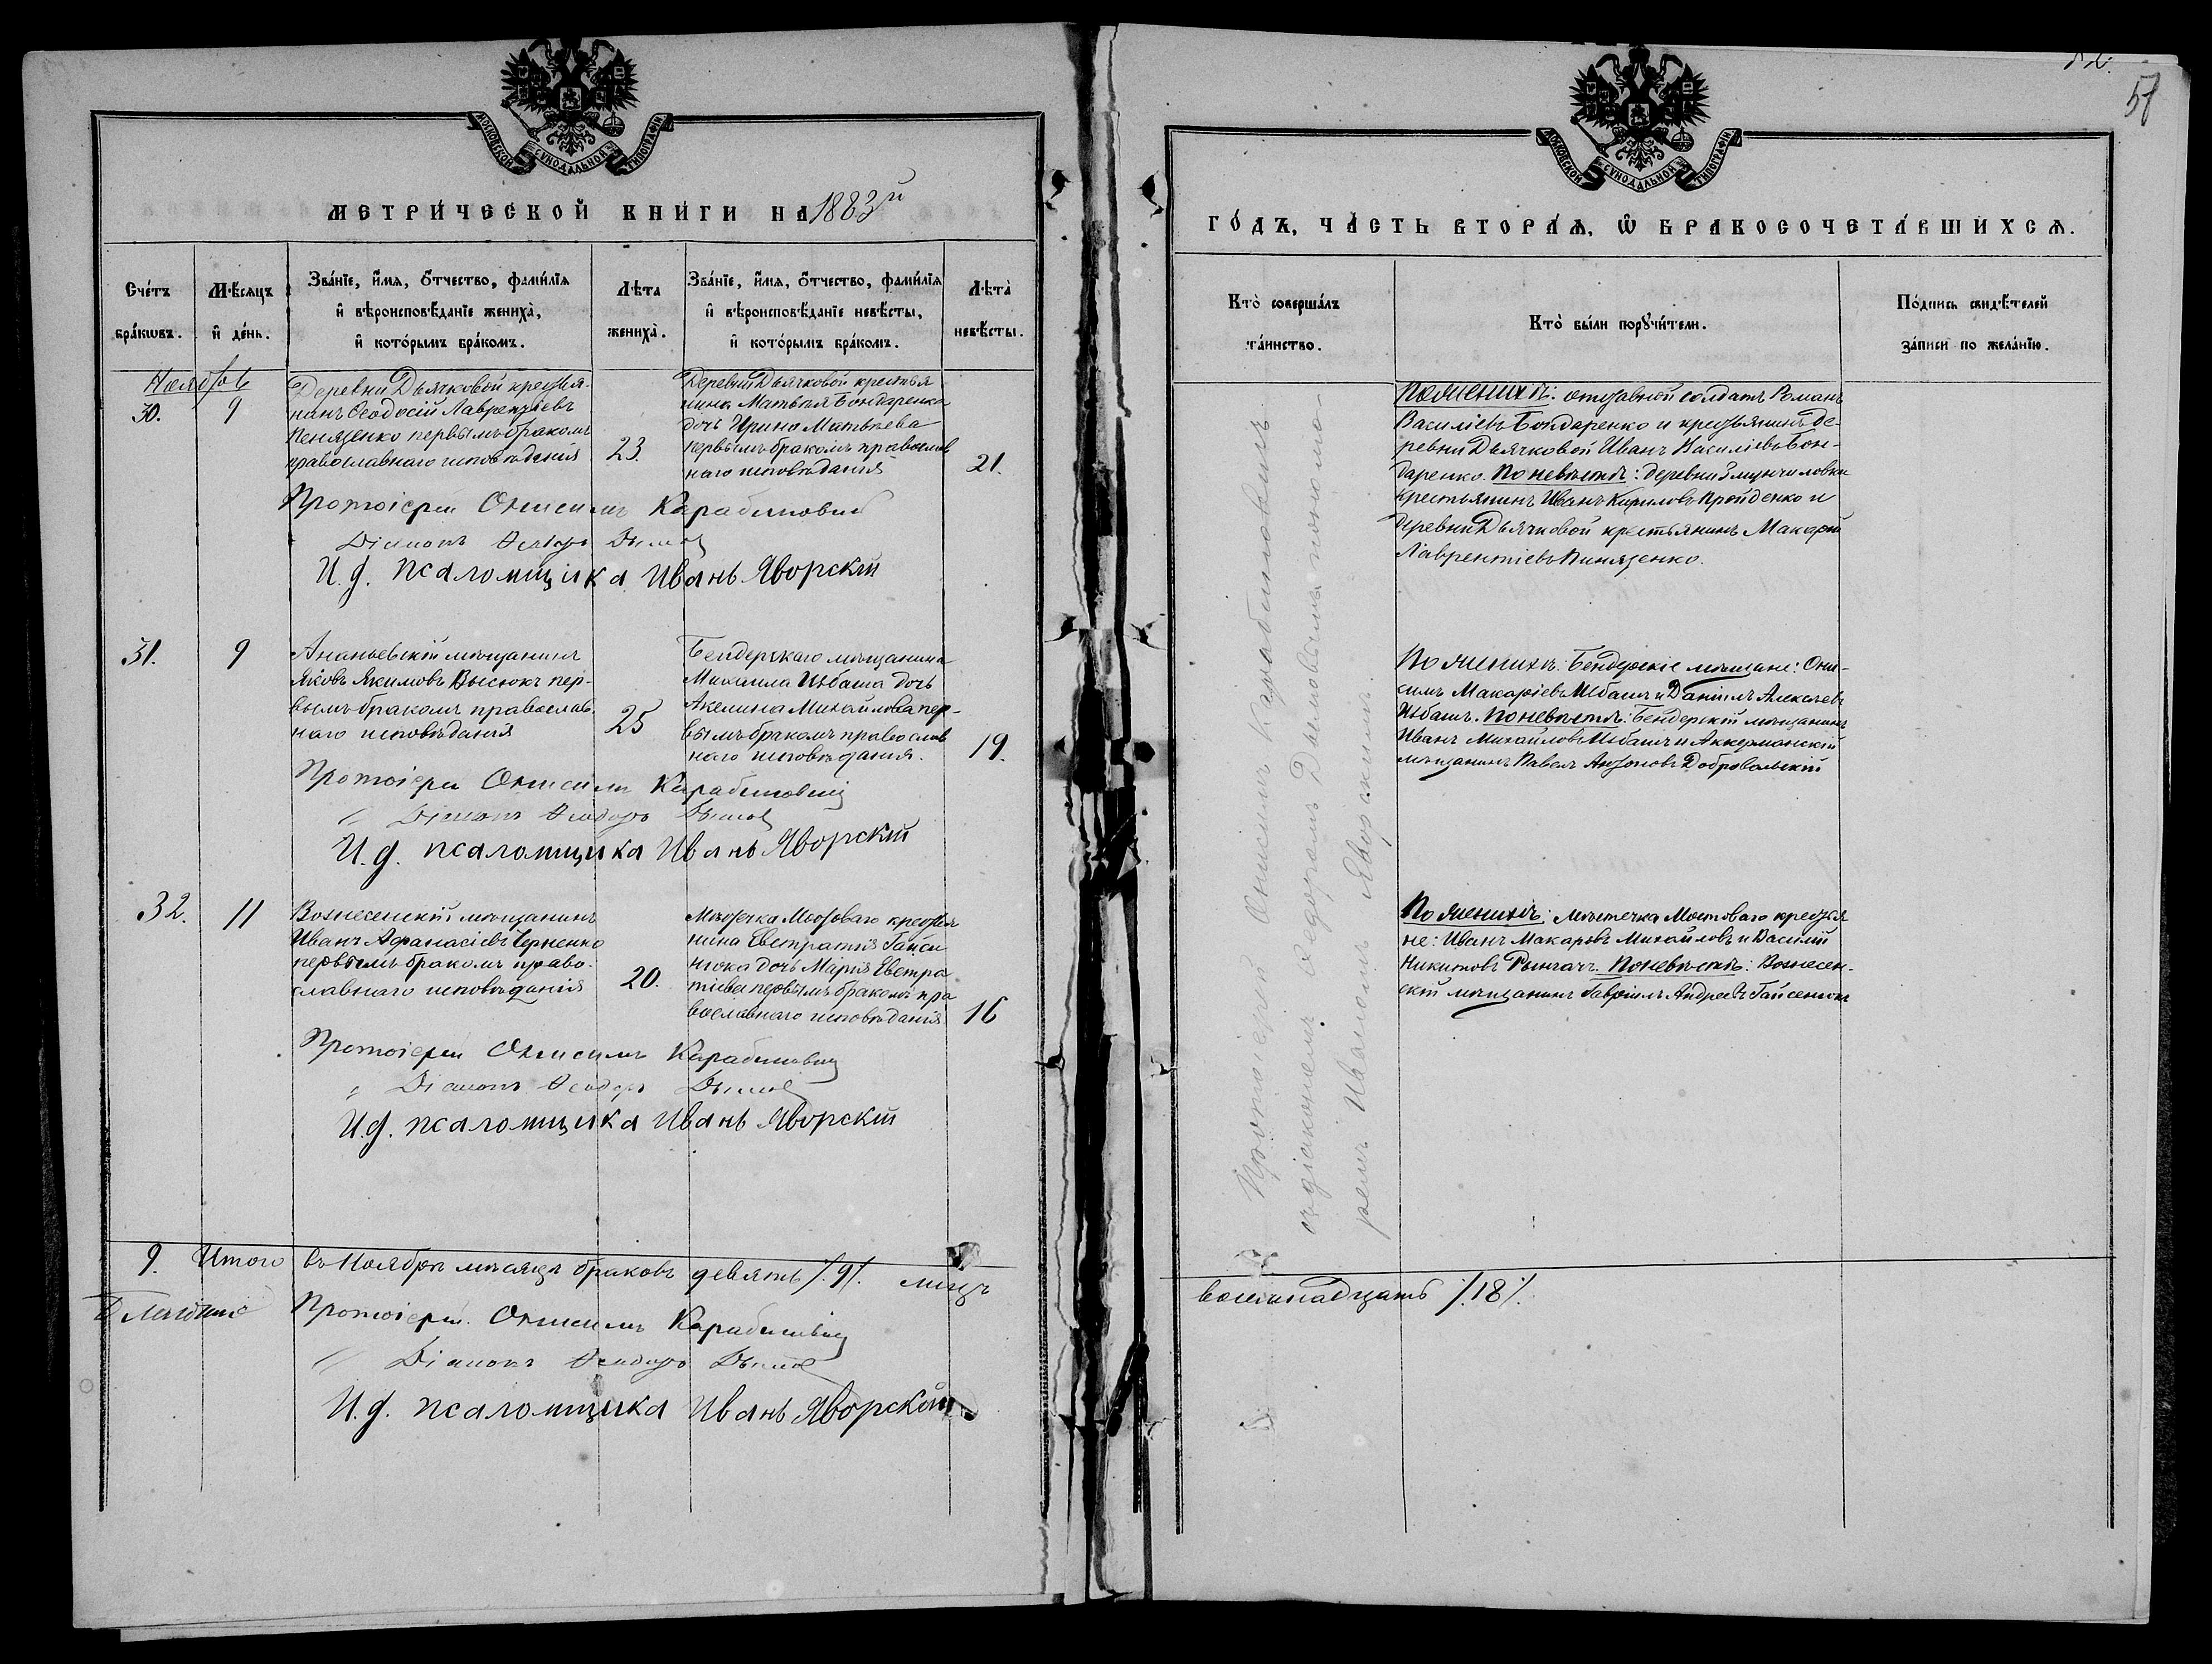 МОСКОВСКОЙ СѴНОДАЛЬНОЙ ТИПОГРАФІИ
МЕТРИЧЕСКОЙ КНИГИ НА 1883й
Счетъ браковъ.
Мѣсяцъ и день.
Званіе, имя, отчество, фамилія и вѣроисповѣданіе жениха, и которымъ бракомъ.
Лѣта жениха.
Званіе, имя, отчество, фамилія и вѣроисповѣданіе невѣсты, и которымъ бракомъ.
Лѣта невѣсты.
Ноябрь
30.
9
Деревни Дьячковой крестья-
нинъ Ѳеодосій Лаврентіевъ
Пенязенко первымъ бракомъ
православнаго исповѣданія
23.
Деревни Дьячковой крестья
нина Матвѣя Бондаренка
дочь Ирина Матвѣева
первымъ бракомъ православ
наго исповѣданія
21.
Протоіерей Онисимъ Карабиновичъ
Діаконъ Ѳеодоръ Дымов
И. д. псаломщика Иванъ Яворскій
31.
9
Ананьевскій мѣщанинъ
Яковъ Якимовъ Высюкъ пер-
вымъ бракомъ православ.
наго исповѣданія
25
Бендерскаго мѣщанина
Михаила Избаша дочь
Акелина Михайлова пер-
вымъ бракомъ православ
наго исповѣданія.
19.
Протоіерей Онисимъ Карабиновичъ
Діаконъ Ѳеодоръ Дымов
И. д. псаломщика Иванъ Яворскій
32.
11
Вознесенскій мѣщанинъ
Иванъ Афанасіевъ Черненко
первымъ бракомъ право-
славнаго исповѣданія
20.
Мѣстечка Мостоваго крестья
нина Евстратія Гайси
нюка дочь Марія Евстра
тіева первымъ бракомъ пра
вославнаго исповѣданія
16
Протоіерей Онисимъ Карабиновичъ
Діаконъ Ѳеодоръ Дымов
И. д. псаломщика Иванъ Яворскій
9. Итого въ Ноябрѣ мѣсяцѣ браковъ девять /.9/. лицъ
Протоіерей Онисимъ Карабиновичъ
Діаконъ Ѳеодоръ Дымов
И. д. псаломщика Иванъ Яворскій
57
МОСКОВСКОЙ СѴНОДАЛЬНОЙ ТИПОГРАФІИ
ГОДЪ, ЧАСТЬ ВТОРАЯ, Ѡ БРАКОСОЧЕТАВШИХСЯ.
Кто совершалъ таинство.
Кто были поручители.
Подпись свидѣтелей записи по желанію.
Протоіерей Онисимъ Карабиновичъ
съ діакономъ Ѳедоромъ Дымовымъ и поно-
ремъ Иваномъ Яворскимъ
По женихѣ: отставной солдатъ Романъ
Василіевъ Бондаренко и крестьянинъ де-
ревни Дьячковой Иванъ Василіевъ Бон-
даренко. По невѣстѣ: деревни Змунчиловки
крестьянинъ Иванъ Кириловъ Пройденко и
деревни Дьячковой крестьянинъ Макарій
Лаврентіевъ Пинязенко.
По женихѣ: Бендерскіе мѣщане: Они-
симъ Макаріевъ Избашъ и Даніилъ Алексѣевъ
Избашъ. По невѣстѣ: Бендерскій мѣщанинъ
Иванъ Михайловъ Избашъ и Аккерманскій
мѣщанинъ Павелъ Антоновъ Добровольскій
По женихѣ: мѣстечка Мостоваго крестья
не: Иванъ Макаровъ Михайловъ и Василій
Никитовъ Рынгачъ. По невѣстѣ: Вознесен-
скій мѣщанинъ Гавріилъ Андреевъ Гайсенюкъ
восемнадцать /.18/.